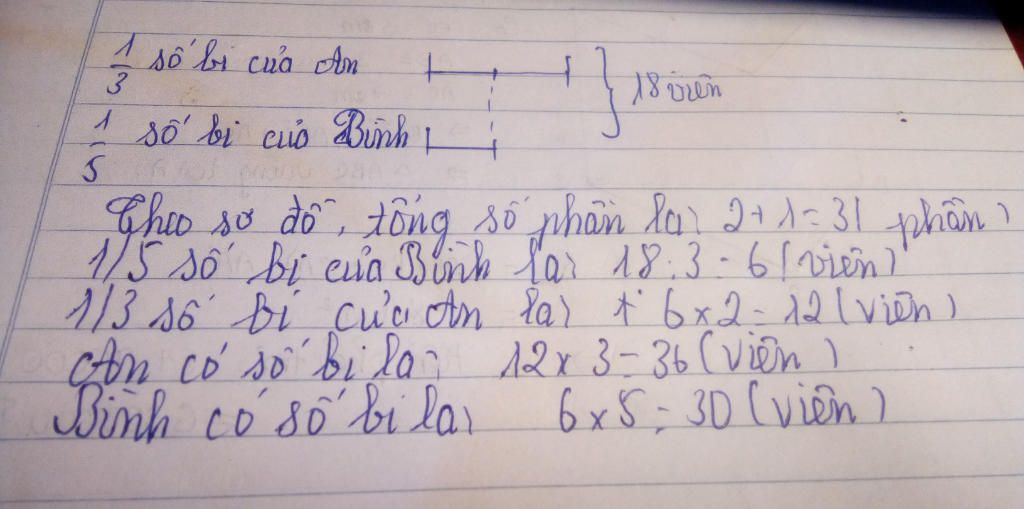 1/3 số bi của An
18 viên
1/5 số bi của Bình
Theo sơ đồ, tổng số phần là: 2+1=3( phần)
1/5 số bi của Bình là: 18:3=6(viên)
1/3 số bi của An là: 6x2=12(viên)
An có số bi là: 12x3=36(viên)
Bình có số bi là: 6x5=30(viên)